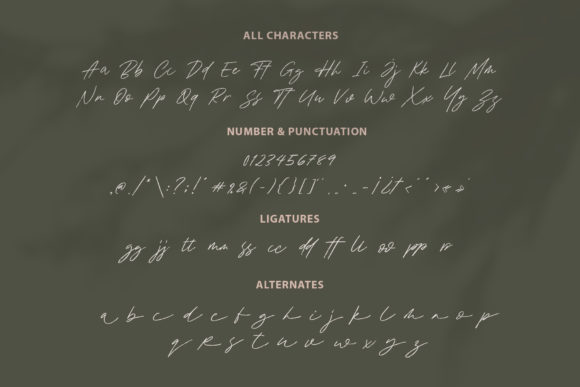 ALL CHARACTERS
Aa Bb Cc Dd Ee Ff Gg Hh Ii Jj Kk Ll Mm
Nn Oo Pp Qq Rr Ss Tt Uu Vv Ww Xx Yy Zz
NUMBER & PUNCTUATION
0123456789
LIGATURES
gg jj tt mm ss cc dd ff ll oo pp rr
ALTERNATES
a b c d e f g h i j k l m n o p
q r s t u v w x y z